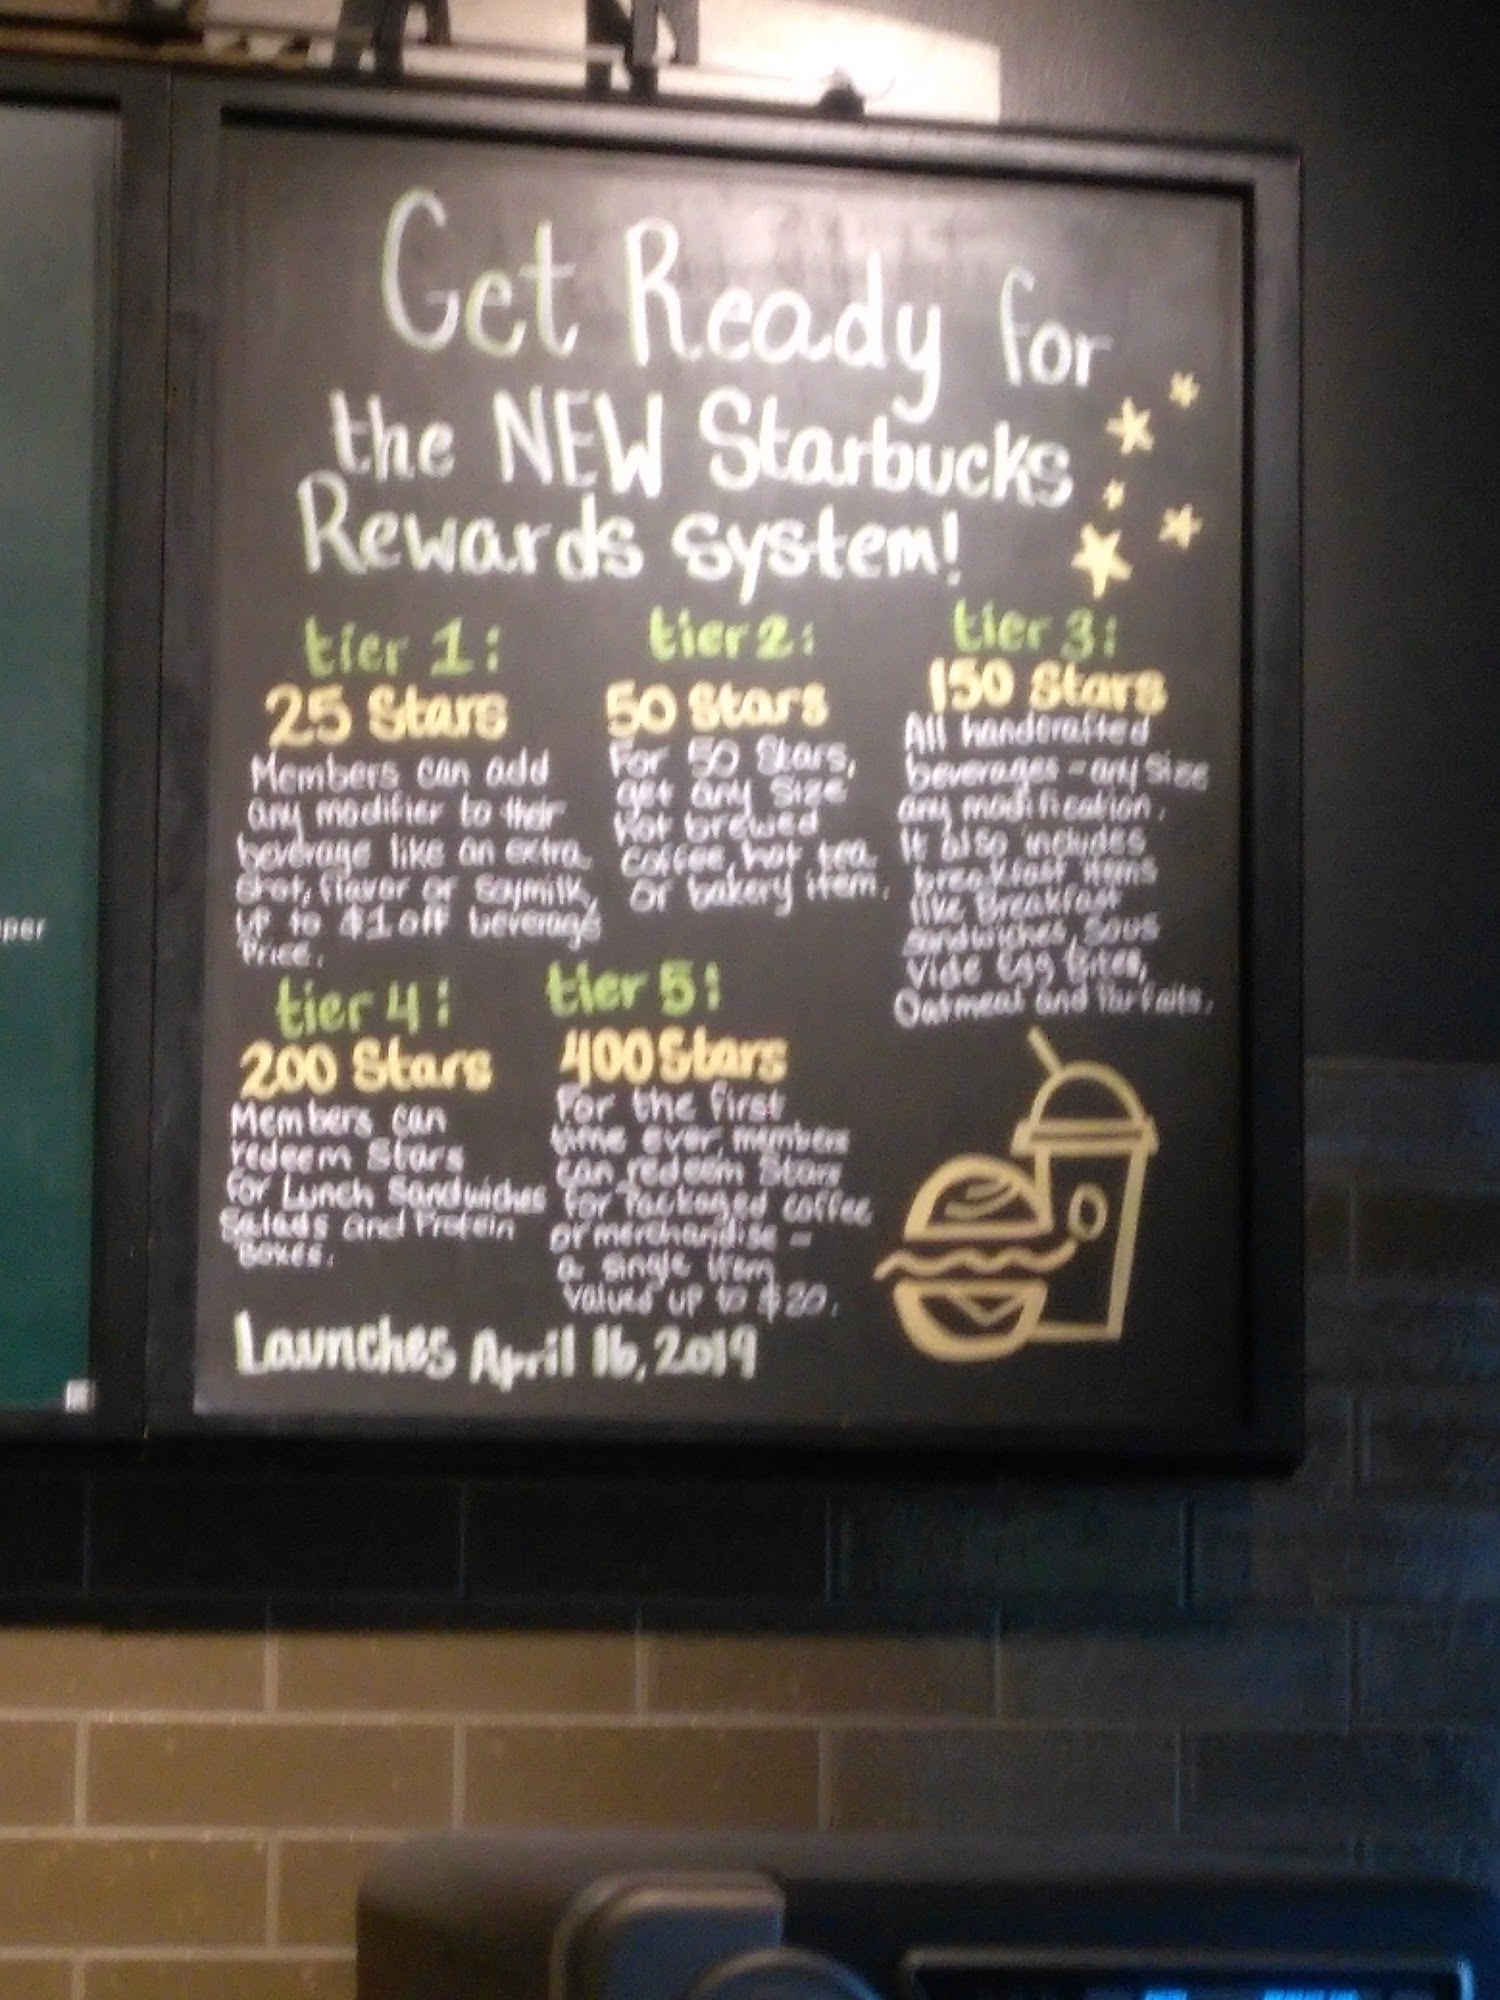 Get Ready for
the NEW Starbucks
Rewards system!
tier 1:
25 Stars
Members can add
any modifier to their
beverage like an extra
shot, flavor or soymilk,
up to $1 off beverage
Price.
tier 2:
50 Stars
For 50 Stars,
get any size
hot brewed
coffee, hot tea
or bakery item.
tier 3:
150 Stars
All handcrafted
beverages - any size
any modification.
It also includes
breakfast items
like Breakfast
sandwiches, Sous
Vide Egg Bites,
Oatmeal and Parfaits.
tier 4:
200 Stars
Members can
redeem Stars
for Lunch Sandwiches
Salads and Protein
Boxes.
tier 5:
400 Stars
For the first
time ever, members
can redeem Stars
for Packaged coffee
or merchandise -
a single item
valued up to $20.
Launches April 16, 2019